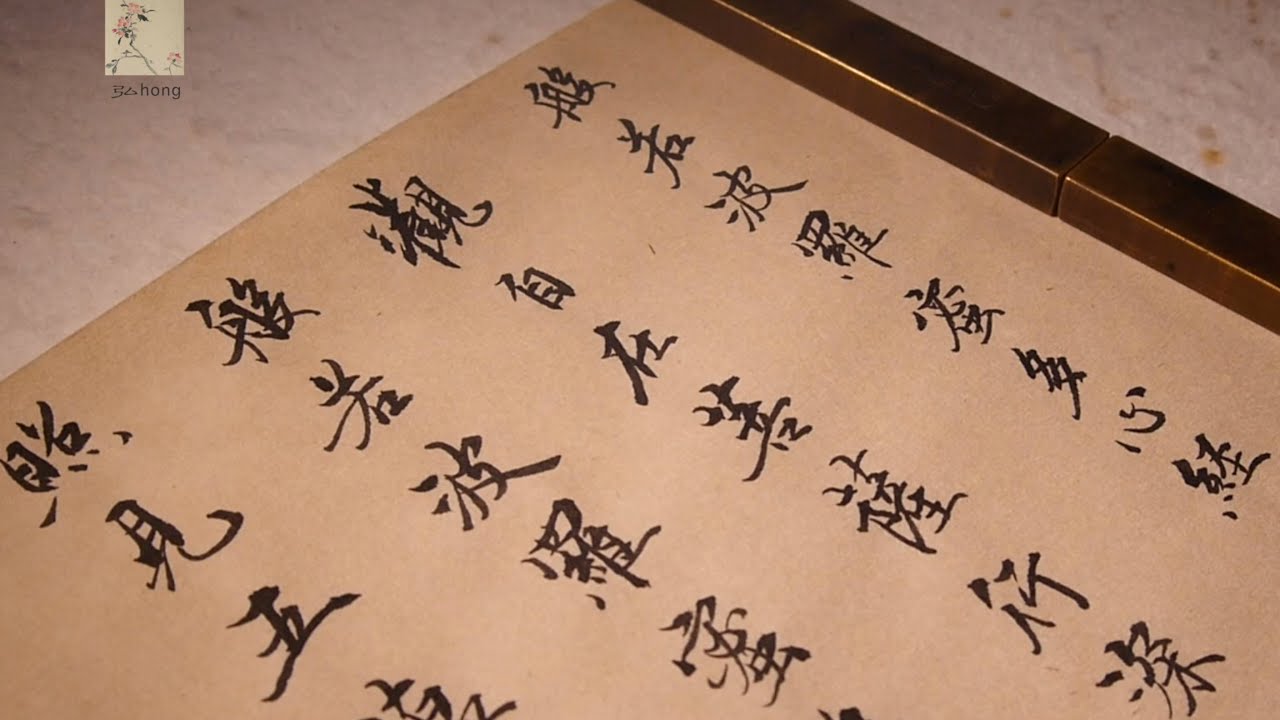 弘hong
般若波羅蜜多心経
觀自在菩薩行深
般若波羅蜜
照見五